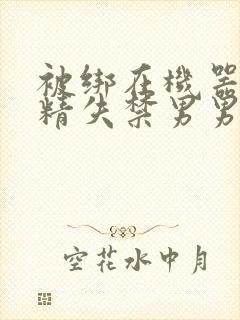 被绑在機器
精失禁男男
空花水中月